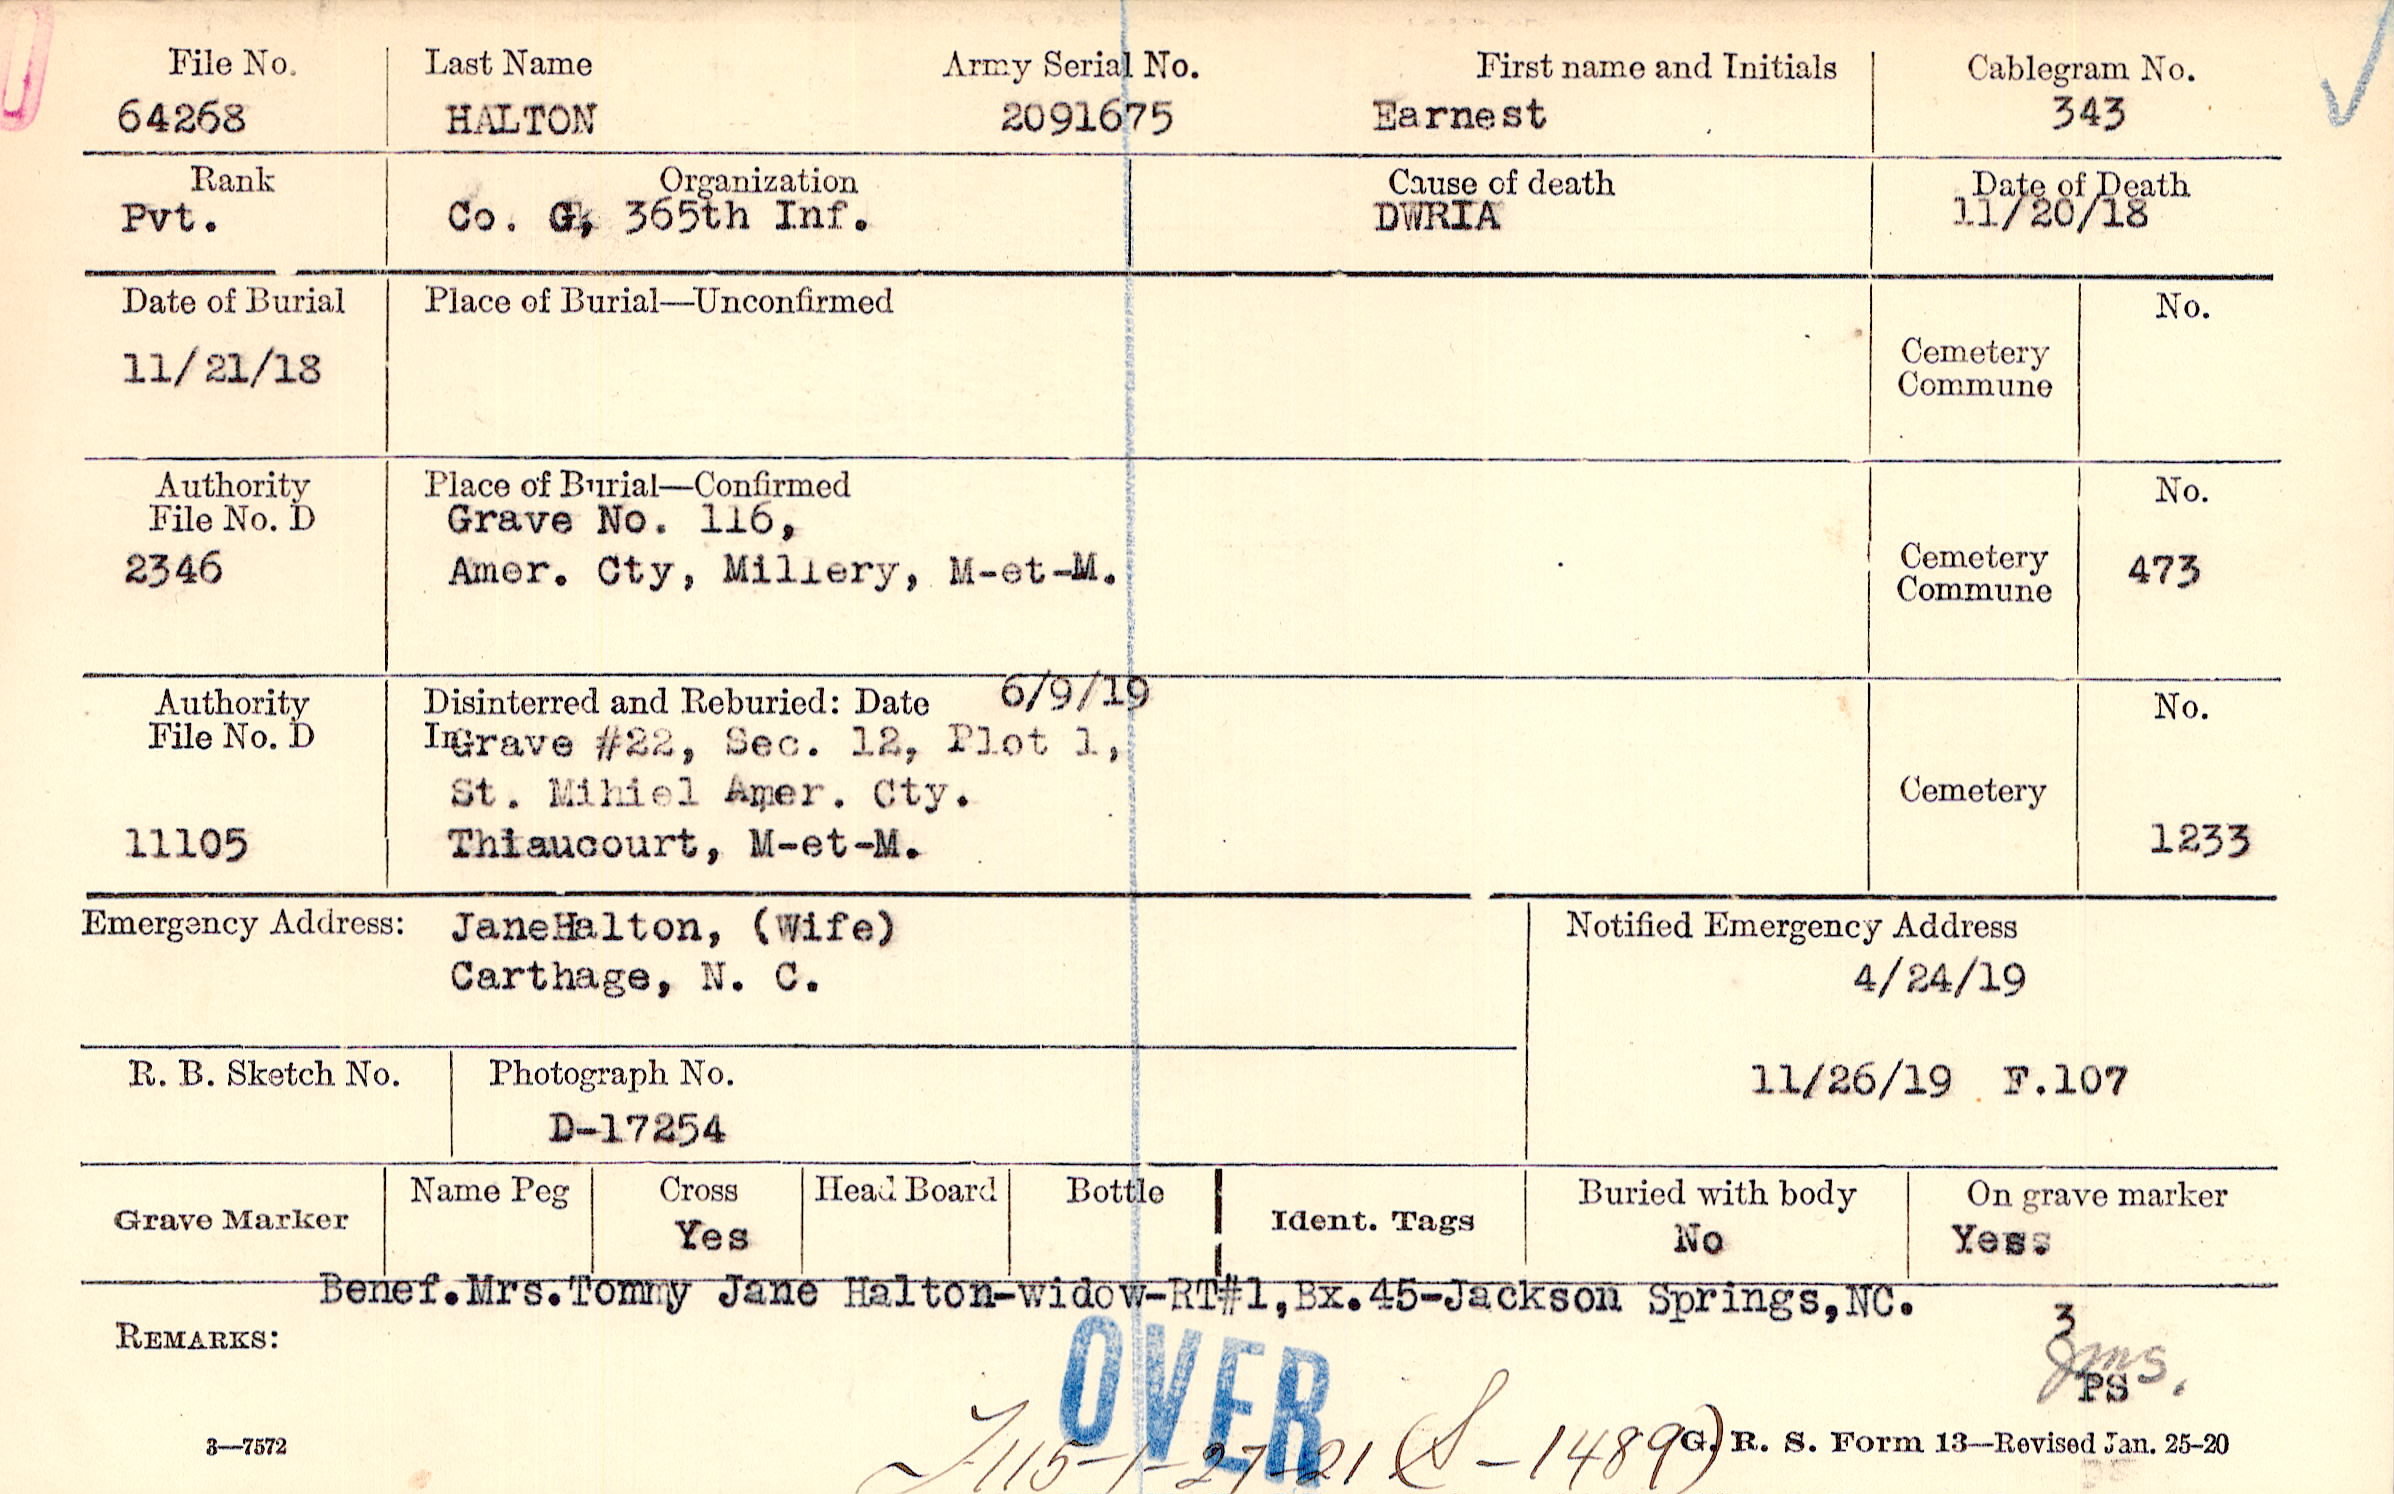 File No. Last Name Army Serial No. First name and Initials Cablegram No.
64268 HALTON 2091675 Earnest 343
Rank Organization Cause of death Date of Death
Pvt. Co. G, 365th Inf. DWRIA 11/20/18
Date of Burial Place of Burial—Unconfirmed No.
11/21/18 Cemetery
Commune
Authority Place of Burial—Confirmed No.
File No. D Grave No. 116,
2346 Amer. Cty, Millery, M-et-M. Cemetery 473
Commune
Authority Disinterred and Reburied: Date 6/9/19 No.
File No. D In Grave #22, Sec. 12, Plot 1,
St. Mihiel Amer. Cty. Cemetery
11105 Thiaucourt, M-et-M. 1233
Emergency Address: JaneHalton, (Wife) Notified Emergency Address
Carthage, N. C. 4/24/19
R. B. Sketch No. Photograph No. 11/26/19 F.107
D-17254
Name Peg Cross Head Board Bottle Buried with body On grave marker
Grave Marker Yes Ident. Tags No Yes.
Benef.Mrs.Tommy Jane Halton-widow-RT#1,Bx.45-Jackson Springs,NC.
REMARKS: 3
Jms.
PS
OVER
3—7572 115-1-27-21 (S-1489) G. R. S. Form 13—Revised Jan. 25-20